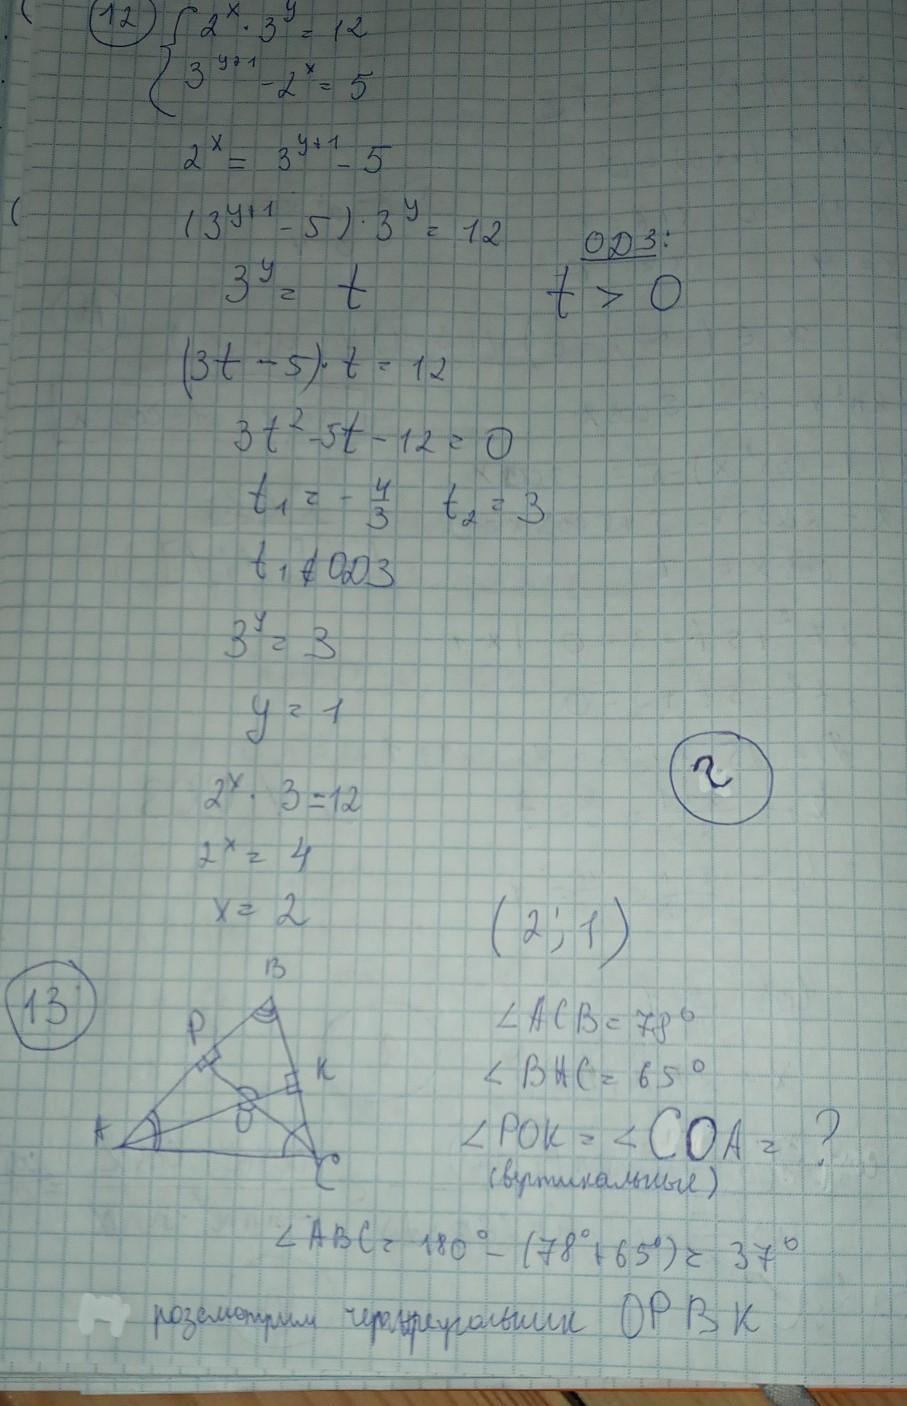 12 { 2^x · 3^y = 12
3^{y+1} - 2^x = 5
2^x = 3^{y+1} - 5
(3^{y+1} - 5) · 3^y = 12
ОДЗ:
3^y = t t > 0
(3t - 5) · t = 12
3t^2 - 5t - 12 = 0
t_1 = - 4/3 t_2 = 3
t_1 ∉ ОДЗ
3^y = 3
y = 1
2^x · 3 = 12
2^x = 4
x = 2
(2; 1)
13
B
P
K
O
A
C
∠ACB = 78°
∠BAC = 65°
∠POK = ∠COA = ?
(вертикальные)
∠ABC = 180° - (78° + 65°) = 37°
розсмотрим четырёхугольник OPBK